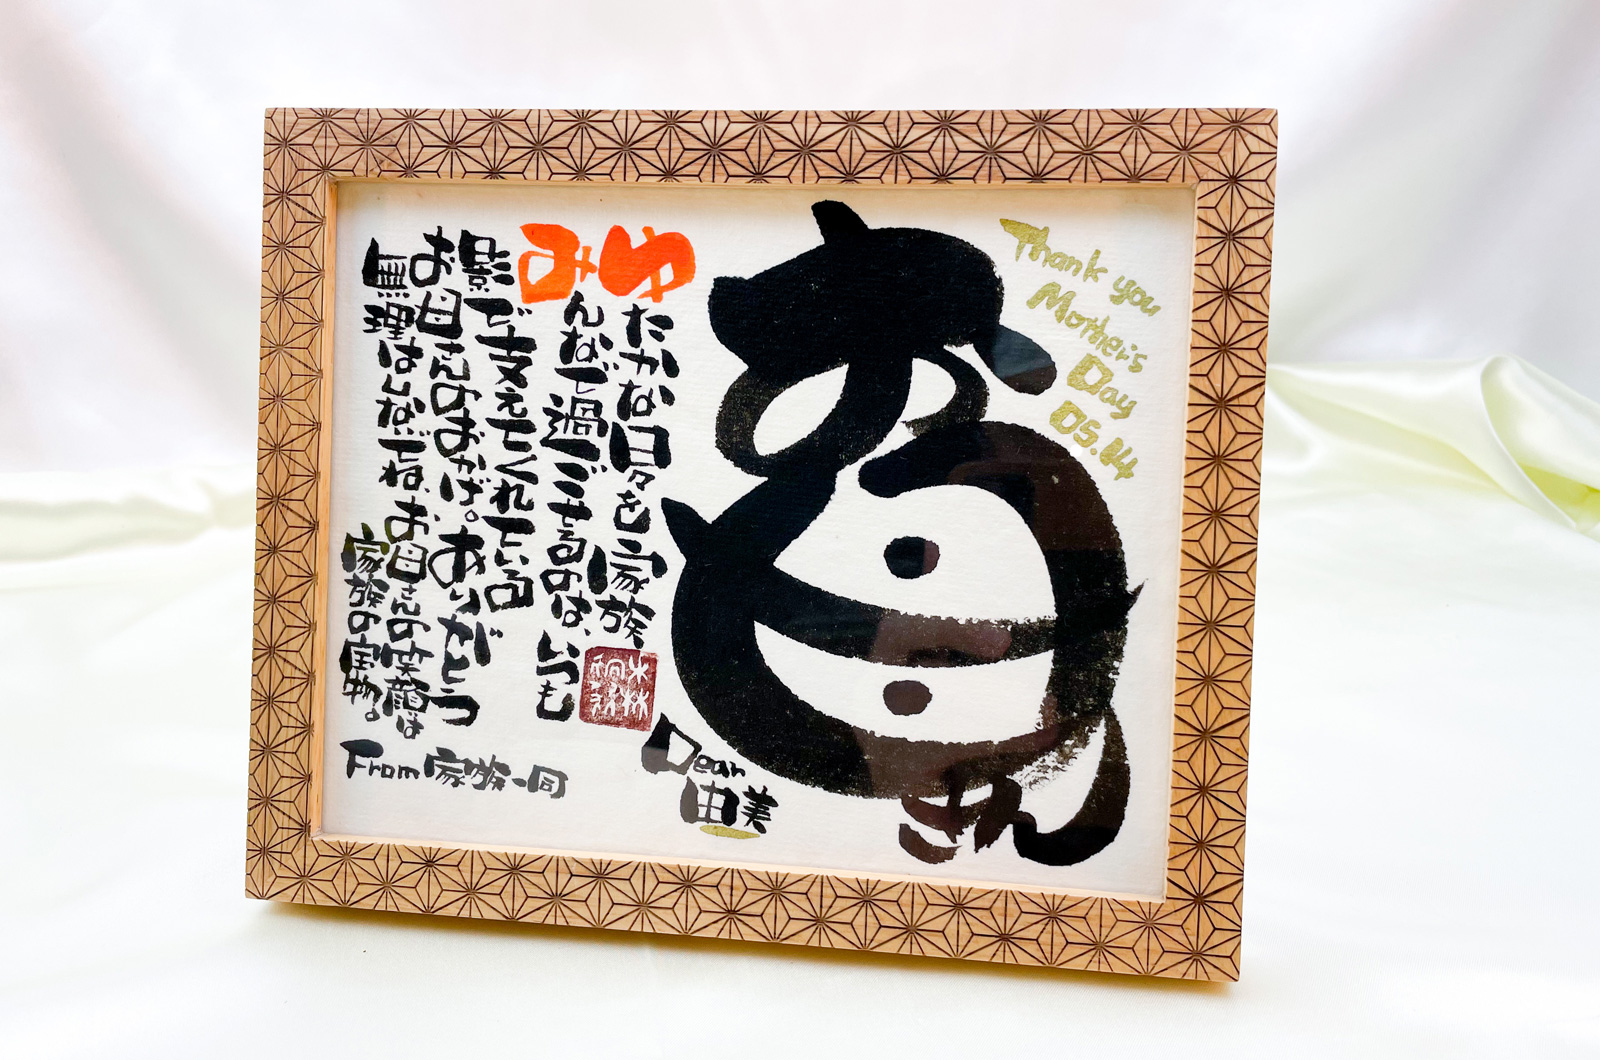 お母さん
Thank you
Mother's
Day
05.14
ゆたかな日々を家族
みんなで過ごせるのは、いつも
影で支えてくれている
お母さんのおかげ。ありがとう
無理はしないでね、お母さんの笑顔は
家族の宝物。
From 家族一同
Dear
由美